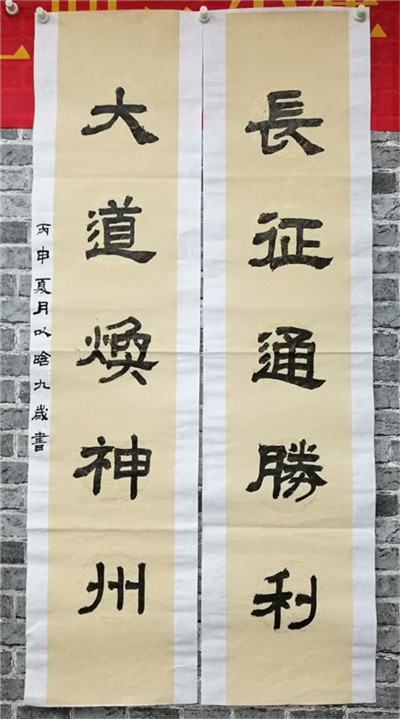 長征通勝利
大道煥神州
丙申夏月以晗九歲書